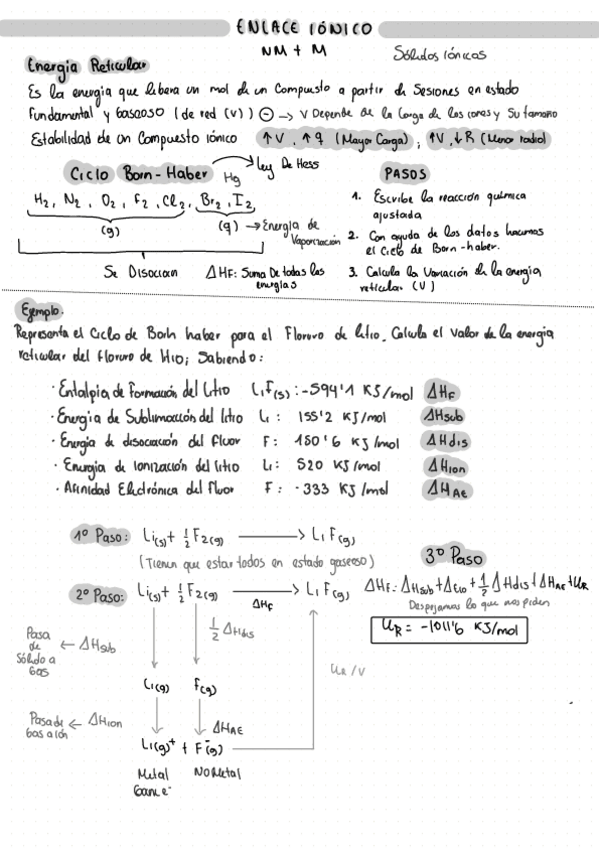 ENLACE IÓNICO
NM + M
Sólidos iónicos
Energia Reticular
Es la energia que libera un mol de un Compuesto a partir de Sesiones en estado
Fundamental y gaseoso (de red (V)) ⊖ → V Depende de la Carga de los iones y Su tamaño
Estabilidad de un Compuesto iónico ↑V, ↑q (Mayor Carga) ; ↑V, ↓R (Menor radio)
Ciclo Born-Haber → ley De Hess
Hg
H₂, N₂, O₂, F₂, Cl₂, Br₂, I₂
(g) (q) → Energía de
Vaporización
Se Disocian ΔHF: Suma De todas las
energías
PASOS
1. Escribe la reacción química
ajustada
2. Con ayuda de los datos hacemos
el Ciclo de Born-haber.
3. Calcula la Variación de la energia
reticular (V)
Ejemplo:
Representa el Ciclo de Born haber para el Floruro de litio. Calcula el Valor de la energia
reticular del floruro de litio; Sabiendo:
· Entalpia de Formación del Litio LiF(s): -594'1 KJ/mol ΔHF
· Energia de Sublimación del litio Li: 155'2 KJ/mol ΔHsub
· Energia de disociación del fluor F: 150'6 KJ/mol ΔHdis
· Energia de Ionización del litio Li: 520 KJ/mol ΔHion
· Afinidad Electrónica del fluor F: -333 KJ/mol ΔHAE
1º Paso: Li(s) + ½ F₂(g) → LiF(g)
(Tienen que estar todos en estado gaseoso)
2º Paso: Li(s) + ½ F₂(g) → LiF(g)
ΔHF
3º Paso
ΔHF = ΔHsub + Δio + ½ ΔHdis + ΔHAE + UR
Despejamos lo que nos piden
UR = -1011'6 KJ/mol
½ ΔHdis
Pasa
de
Sólido a
Gas
← ΔHsub
UR/V
Li(g) F(g)
Pasa de
Gas a ión
← ΔHion
ΔHAE
Li(g)⁺ + F⁻(g)
Metal No Metal